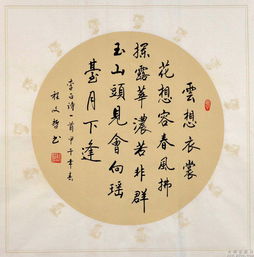 雲想衣裳
花想容春風拂
檻露華濃若非群
玉山頭見會向瑤
臺月下逢
李白詩一首甲午年春
文哲书